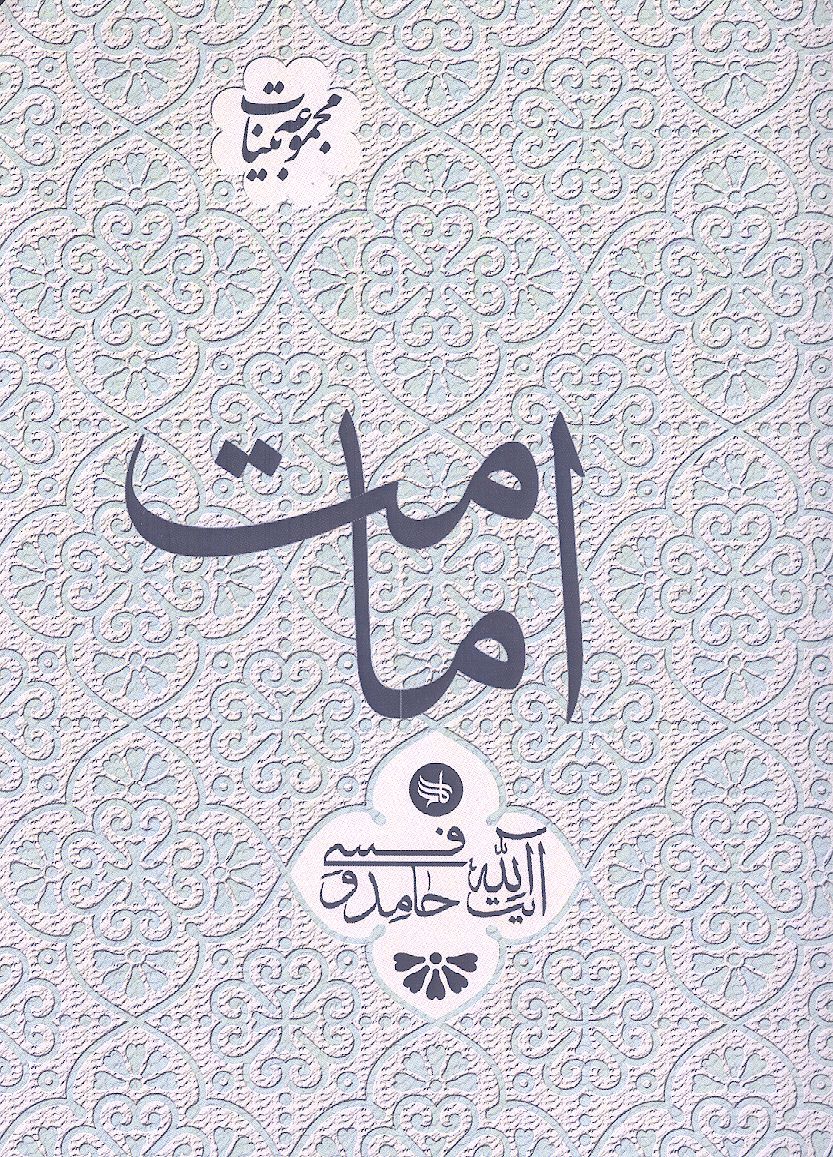 مجموعه بینات
امامت
آیت الله حامد وفسی